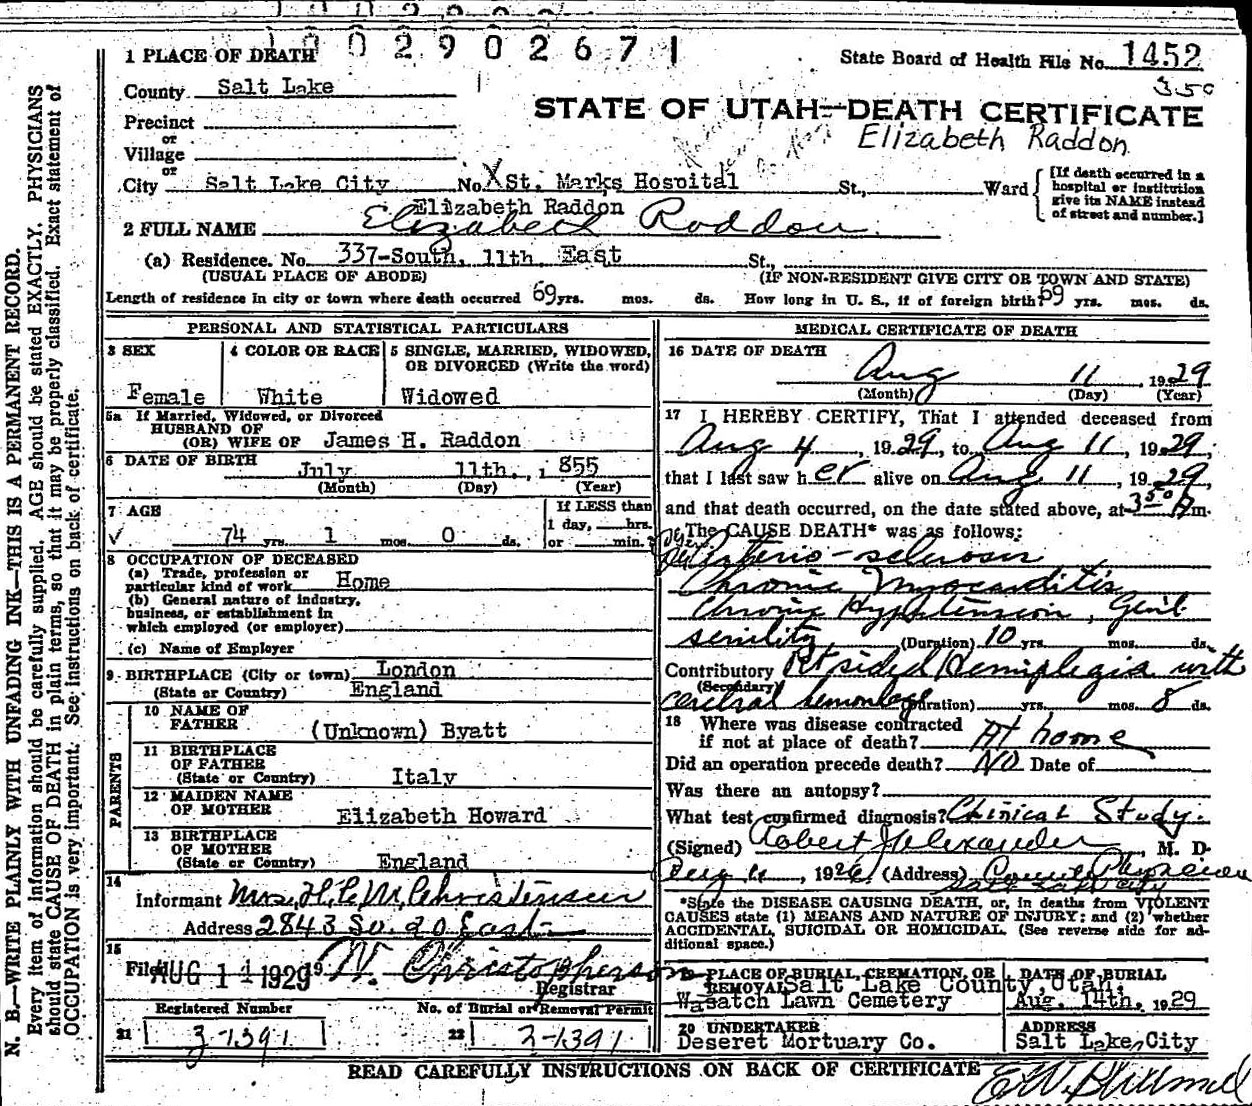 1002902671
1 PLACE OF DEATH
State Board of Health File No. 1452
County Salt Lake
350
STATE OF UTAH—DEATH CERTIFICATE
Precinct
or
Village
Elizabeth Raddon
or
City Salt Lake City No. X St. Marks Hospital St., Ward
[If death occurred in a hospital or institution give its NAME instead of street and number.]
Elizabeth Raddon
2 FULL NAME Elizabeth Raddon
(a) Residence. No. 337-South, 11th East St.,
(USUAL PLACE OF ABODE) (IF NON-RESIDENT GIVE CITY OR TOWN AND STATE)
Length of residence in city or town where death occurred 69 yrs. mos. ds. How long in U. S., if of foreign birth? 69 yrs. mos. ds.
PERSONAL AND STATISTICAL PARTICULARS
3 SEX
Female
4 COLOR OR RACE
White
5 SINGLE, MARRIED, WIDOWED,
OR DIVORCED (Write the word)
Widowed
5a If Married, Widowed, or Divorced
HUSBAND OF
(OR) WIFE OF James H. Raddon
6 DATE OF BIRTH July 11th, 1855
(Month) (Day) (Year)
7 AGE
74 yrs. 1 mos. 0 ds.
If LESS than
1 day, hrs.
or min.?
8 OCCUPATION OF DECEASED
(a) Trade, profession or
particular kind of work Home
(b) General nature of industry,
business, or establishment in
which employed (or employer)
(c) Name of Employer
9 BIRTHPLACE (City or town) London
(State or Country) England
PARENTS
10 NAME OF
FATHER (Unknown) Byatt
11 BIRTHPLACE
OF FATHER
(State or Country) Italy
12 MAIDEN NAME
OF MOTHER Elizabeth Howard
13 BIRTHPLACE
OF MOTHER
(State or Country) England
14
Informant Mrs. H. C. M. Christensen
Address 2843 So. 20 East
15
Filed AUG 14 1929 19 W. Christopherson
Registrar
Registered Number No. of Burial or Removal Permit
21 3-1391 22 3-1391
MEDICAL CERTIFICATE OF DEATH
16 DATE OF DEATH
Aug 11, 1929
(Month) (Day) (Year)
17 I HEREBY CERTIFY, That I attended deceased from
Aug 4, 1929, to Aug 11, 1929,
that I last saw her alive on Aug 11, 1929,
and that death occurred, on the date stated above, at 3 50 A m.
The CAUSE DEATH* was as follows:
Arterio-sclerosis
Chronic Myocarditis
Chronic Hypertension, Genl
senility (Duration) 10 yrs. mos. ds.
Contributory Rt sided Hemiplegia with
(Secondary)
cerebral hemorrhage (Duration) yrs. mos. 8 ds.
18 Where was disease contracted
if not at place of death? At home
Did an operation precede death? NO Date of
Was there an autopsy?
What test confirmed diagnosis? Clinical Study.
(Signed) Robert J Alexander, M. D.
Aug 11, 1926 (Address) County Physician
Salt Lake City
*State the DISEASE CAUSING DEATH, or, in deaths from VIOLENT
CAUSES state (1) MEANS AND NATURE OF INJURY; and (2) whether
ACCIDENTAL, SUICIDAL OR HOMICIDAL. (See reverse side for ad-
ditional space.)
PLACE OF BURIAL, CREMATION, OR
REMOVAL Salt Lake County, Utah.
Wasatch Lawn Cemetery
DATE OF BURIAL
Aug. 14th, 1929
20 UNDERTAKER
Deseret Mortuary Co.
ADDRESS
Salt Lake City
READ CAREFULLY INSTRUCTIONS ON BACK OF CERTIFICATE
N. B.—WRITE PLAINLY WITH UNFADING INK—THIS IS A PERMANENT RECORD.
Every item of information should be carefully supplied. AGE should be stated EXACTLY. PHYSICIANS
should state CAUSE OF DEATH in plain terms, so that it may be properly classified. Exact statement of
OCCUPATION is very important. See instructions on back of certificate.